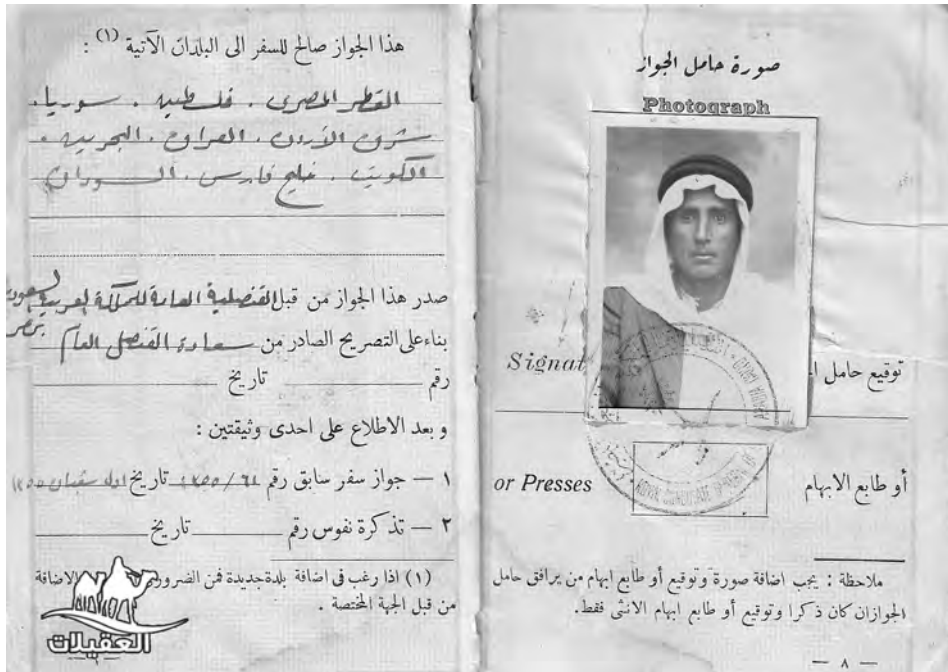 صورة حامل الجواز
Photograph
Signat
توقيع حامل ا
or Presses
أو طابع الابهام
ROYAL CONSULATE
ملاحظة : يجب اضافة صورة وتوقيع أو طابع ابهام من يرافق حامل
الجوازان كان ذكرا وتوقيع أو طابع ابهام الانثى فقط.
— ٨ —
هذا الجواز صالح للسفر الى البلدان الآتية (١) :
القطر المصرى . فلسطين . سوريا .
شرق الأردن . العراق . البحرين .
الكويت . خليج فارس . السودان
صدر هذا الجواز من قبل القنصلية العامة للمملكة العربية السعودية
بمصر
بناء على التصريح الصادر من سعادة القنصل العام
رقم تاريخ
و بعد الاطلاع على احدى وثيقتين :
١ — جواز سفر سابق رقم ٦١ / ١٣٥٥ تاريخ اول شعبان ١٣٥٥
٢ — تذكرة نفوس رقم تاريخ
(١) اذا رغب فى اضافة بلدة جديدة فمن الضرورى الاضافة
من قبل الجهة المختصة .
العقيلات